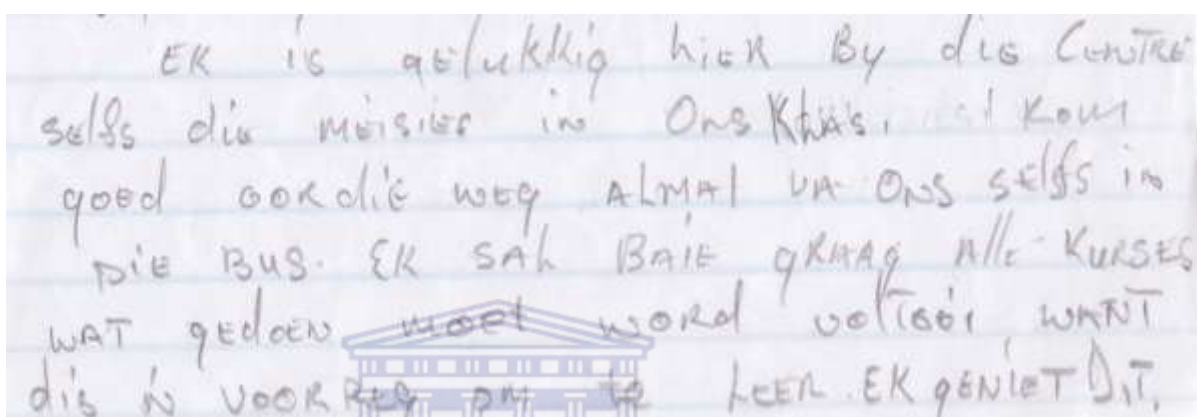 EK is gelukkig hier By die Centre
selfs die meisies in Ons Klas. Kom
goed oor die weg ALMAL va Ons selfs in
Die Bus. Ek SAL BAIE graag Alle Kurses
WAT gedoen moet word voltooi WANT
dis 'n VOORReg om te LEER. EK GENIET DiT.